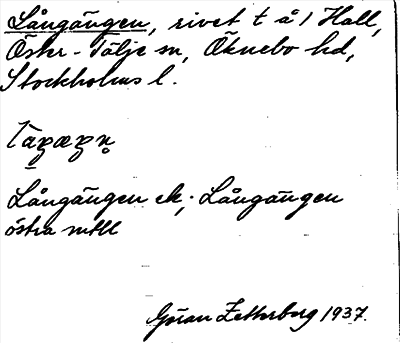 Långängen, rivet t å 1 Hall,
Öster-Tälje sn, Öknebo hd,
Stockholms l.
Långängen ek; Långängen
östra mtll
Göran Zetterberg 1937.